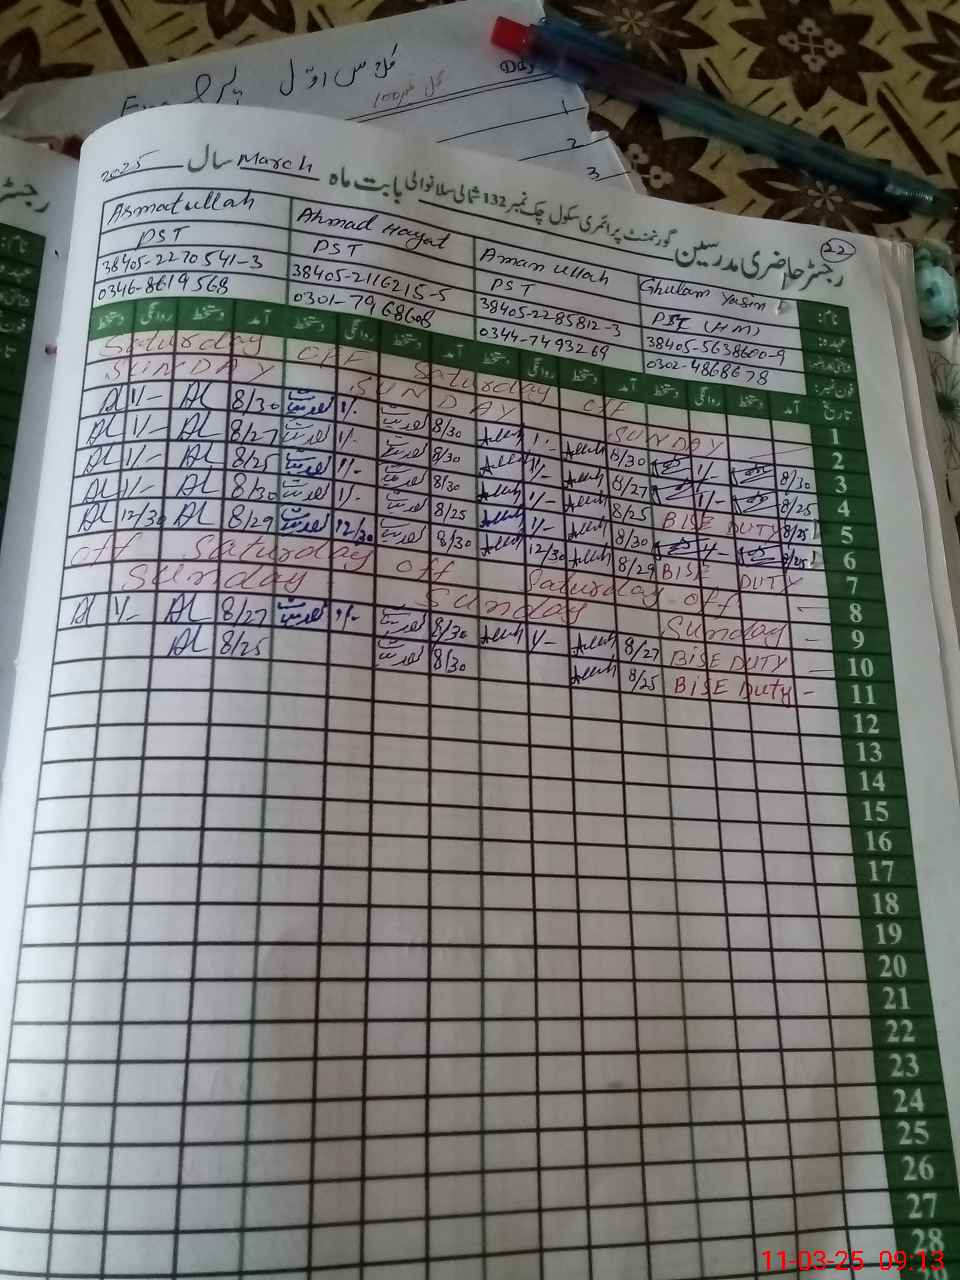 کلاس اوّل
Day
1
2
3
22
رجسٹر حاضری مدرسین گورنمنٹ پرائمری سکول چک نمبر 132 شمالی سلانوالی بابت ماہ March سال 2025
Asmatullah Ahmad Hayat Amanullah Ghulam Yasin نام:
PST PST PST PST (HM) عہدہ:
38405-2270541-3 38405-2116215-5 38405-2285812-3 38405-5638600-9
0346-8619568 0301-7968608 0344-7493269 0302-4868678 فون نمبر:
دستخط روانگی دستخط آمد دستخط روانگی دستخط آمد دستخط روانگی دستخط آمد دستخط روانگی دستخط آمد تاریخ
Saturday OFF Saturday off 1
SUNDAY SUNDAY SUNDAY 2
1/- 8/30 1/- 8/30 1/- 8/30 1/- 8/30 3
1/- 8/27 1/- 8/30 1/- 8/27 1/- 8/25 4
1/- 8/25 1/- 8/30 1/- 8/25 BISE DUTY 8/25 5
1/- 8/30 1/- 8/25 1/- 8/30 8/25 6
12/30 8/29 12/30 8/30 12/30 8/29 BISE DUTY 7
off Saturday off Saturday off 8
Sunday Sunday Sunday 9
1/- 8/27 1/- 8/30 1/- 8/27 BISE DUTY 10
8/25 8/30 8/25 BISE Duty 11
12
13
14
15
16
17
18
19
20
21
22
23
24
25
26
27
28
11-03-25 09:13